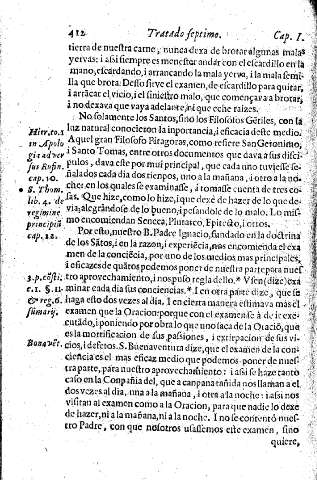 412 Tratado septimo. Cap. I.
tierra de nuestra carne, nunca dexa de brotar algunas malas
yervas: i assi siempre es menester andar con el escardillo en la
mano, escardando, i arrancando la mala yerva, i la mala semi-
lla que brota: Desso sirve el examen, de escardillo para quitar,
i arrãcar el vicio, i el siniestro malo, que começava a brotar,
i a no dexava que vaya adelante, ni que eche raizes.
No solamente los Santos, sino los Filosofos Gẽtiles, con la
luz natural conocieron la inportancia, i eficacia deste medio.
Aquel gran Filosofo Pitagoras, como refiere San Geronimo,
i Santo Tomas, entre otros documentos que dava a sus disci-
pulos, dava este por mui principal, que cada uno tuviesse se-
ñalados cada dia dos tienpos, uno a la mañana, i otro a la no-
che: en los quales se examinasse, i tomasse cuenta de tres co-
sas. Que hize, como lo hize, i que dexé de hazer de lo que de-
via; alegrãdose de lo bueno, i pesandole de lo malo. Lo mis-
mo encomiendan Seneca, Plutarco, Epitecto, i otros.
Por esto, nuestro B. Padre Ignacio, fundado en la doctrina
de los Sãtos, i en la razon, i experiẽcia, nos encomienda el exa
men de la conciẽcia, por uno de los medios mas principales,
i eficazes de quãtos podemos poner de nuestra parte para nues
tro aprovechamiento, i nos puso regla dello. * Usen (dize) exa
minar cada dia sus conciencias. * I en otra parte dize, que se
haga esto dos vezes al dia. I en cierta manera estimava mas el
examen que la Oracion: porque con el examen se à de ir exe-
cutãdo, i poniendo por obra lo que uno saca de la Oraciõ, que
es la mortificacion de sus passiones, i extirpacion de sus vi-
cios, i defetos. S. Buenaventura dize, que el examen de la con-
ciencia es el mas eficaz medio que podemos poner de nues-
tra parte, para nuestro aprovechamiento: i assi se haze tanto
caso en la Conpañia del, que a canpana tañida nos llaman a el
dos vezes al dia, una a la mañana, i otra a la noche: i assi nos
visitan al examen como a la Oracion, para que nadie lo dexe
de hazer, ni a la mañana, ni a la noche. I no se contentó nues-
tro Padre, con que nosotros usassemos este examen, sino
quiere,
Hier. to. 1
in Apolo
gie adver
sus Rufin.
cap. 10.
S. Thom.
lib. 4. de
regimine
principũ
cap. 22.
3. p. cõsti;
c. 1. §. 11
& reg. 6.
sũmarij.
Bonaver.